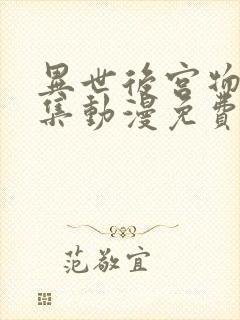 異世後宮物
集動漫免費
范敬宜